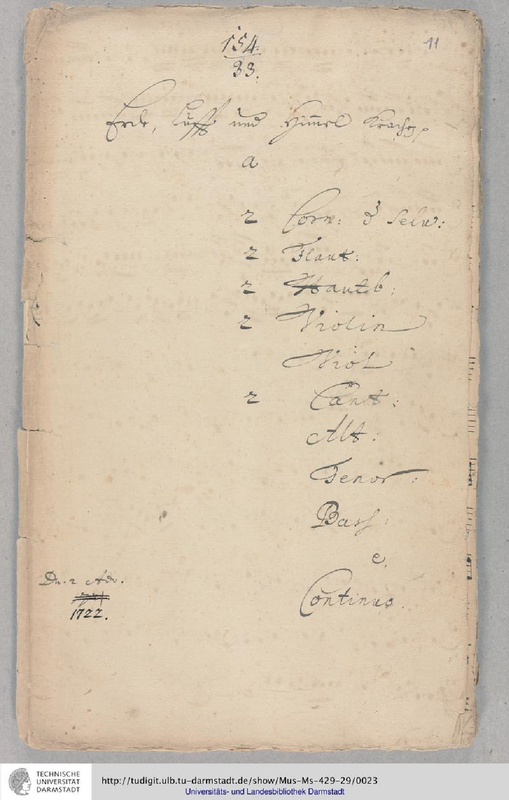 154.
33.
11
Erde, Lufft und Himel krachen
a
2 Corn: di Selv:
2 Flaut:
2 Hautb:
2 Violin
Viol
2 Cant:
Alt:
Tenor:
Bass:
e
Continuo.
Dn. 2 Adv.
1722.
TECHNISCHE
UNIVERSITÄT
DARMSTADT
http://tudigit.ulb.tu-darmstadt.de/show/Mus-Ms-429-29/0023
Universitäts- und Landesbibliothek Darmstadt